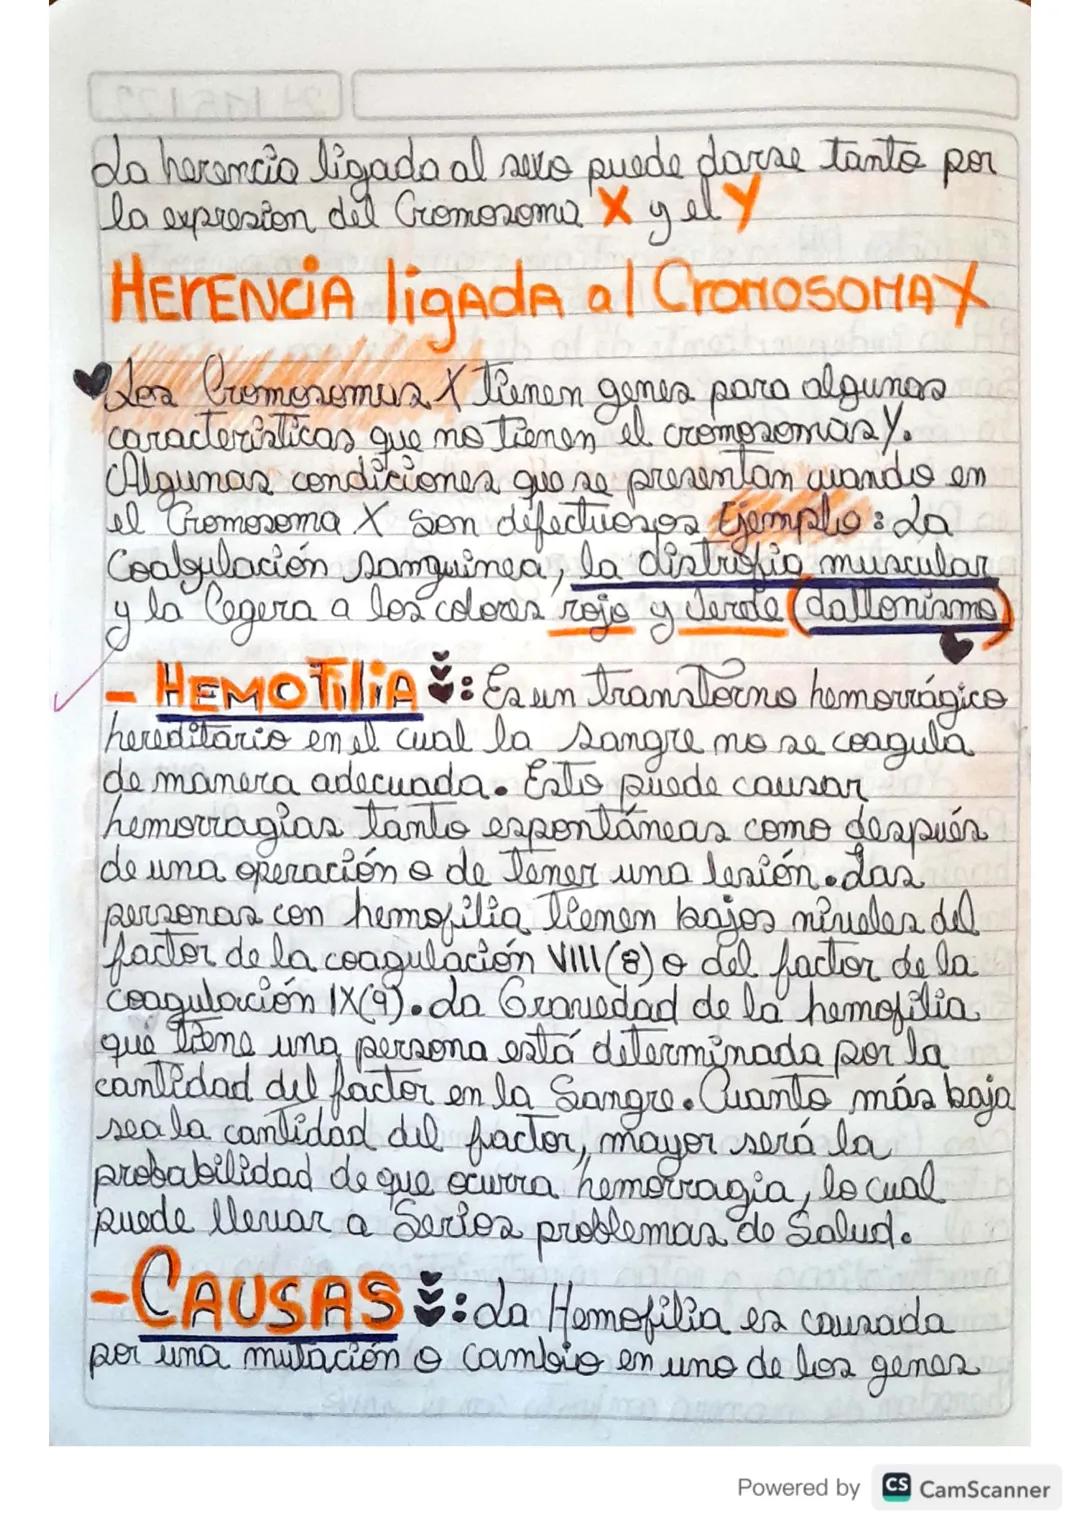 La herencia ligada al sexo puede darse tanto por
la expresion del Cromosoma X y el Y
HERENCIA ligADA al CROMOSOMA X
Los Cromosomas X tienen genes para algunas
caracteristicas que no tienen el cromosomas Y.
Algunas condiciones que se presentan cuando en
el Cromosoma X son defectuosos Ejemplo: La
Coalgulación sanguinea, la distrofia muscular
y la Cegera a los colores rojo y Verde (daltonismo)
- HEMOfiliA: Es un transtorno hemorrágico
hereditario en el cual la sangre no se coagula
de manera adecuada. Esto puede causar
hemorragias tanto espontáneas como después
de una operación o de tener una lesión. Las
personas con hemofilia tienen bajos niveles del
factor de la coagulación VIII (8) o del factor de la
coagulación IX(9). La Gravedad de la hemofilia
que tiene una persona está determinada por la
cantidad del factor en la Sangre. Cuanto más baja
sea la cantidad del factor, mayor será la
probabilidad de que ocurra hemorragia, lo cual
puede llevar a Serios problemas de Salud.
-CAUSAS: La Hemofilia es causada
por una mutación o cambio en uno de los genes
Powered by CS CamScanner